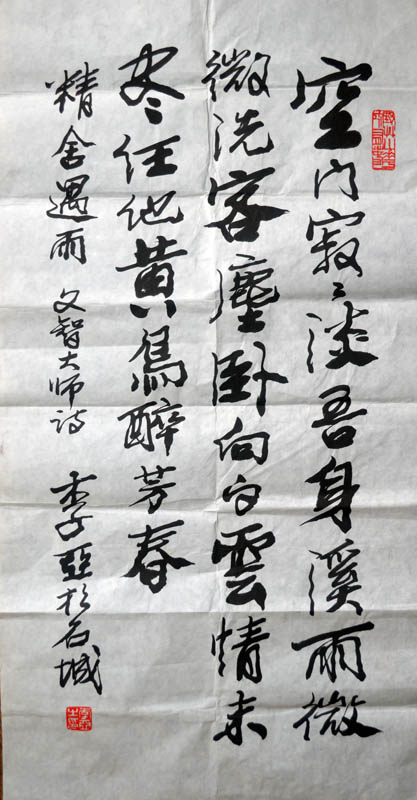 空门寂々淡吾身溪雨微
微洗客塵卧向白雲情未
尽任他黄鳥醉芳春
精舍遇雨 文智大师诗 季亚于石城